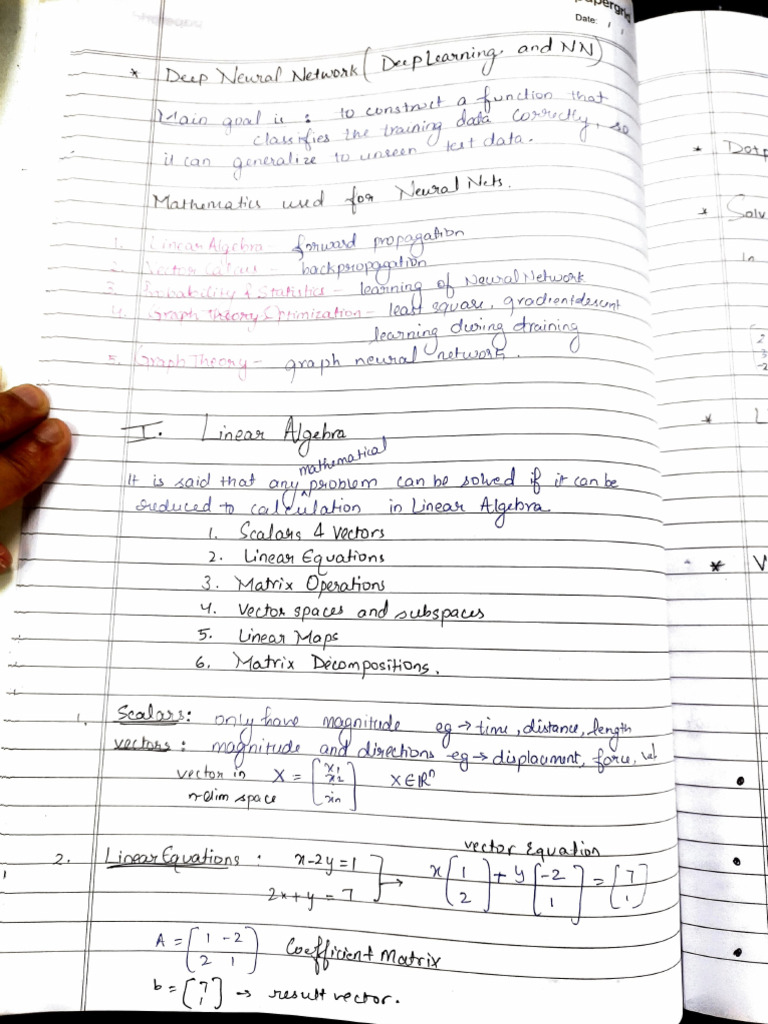 papergrid
Date: / /
* Deep Neural Network (Deep Learning and NN)
Main goal is : to construct a function that
classifies the training data correctly, so
it can generalize to unseen test data.
Mathematics used for Neural Nets.
1. Linear Algebra - forward propagation
2. Vector Calculus - backpropagation
3. Probability & Statistics - learning of Neural Network
4. Graph Theory Optimization - least square, gradient descent
learning during training
5. Graph Theory - graph neural network.
I. Linear Algebra
mathematical
It is said that any ^ problem can be solved if it can be
reduced to calculation in Linear Algebra
1. Scalars & Vectors
2. Linear Equations
3. Matrix Operations
4. Vector spaces and subspaces
5. Linear Maps
6. Matrix Decompositions.
1. Scalars: only have magnitude eg → time, distance, length
vectors: magnitude and directions eg → displacement, force, vel
vector in X = [x1 x2 : xn] X ∈ ℝⁿ
n-dim space
2. Linear Equations : x-2y=1
2x+y=7
→ vector Equation
x[1 2] + y[-2 1] = [7 1]
A = [1 -2
2 1] Coefficient Matrix
b = [7 1] → result vector.
* Dotp
* Solv
In
2
3
-2
* L
* V